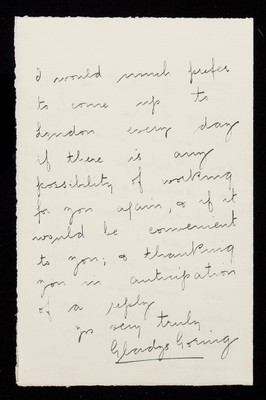 I would much prefer
to come up to
London every day
if there is any
possibility of working
for you again, & if it
would be convenient
to you; & thanking
you in anticipation
of a reply
yrs very truly
Gladys Goring